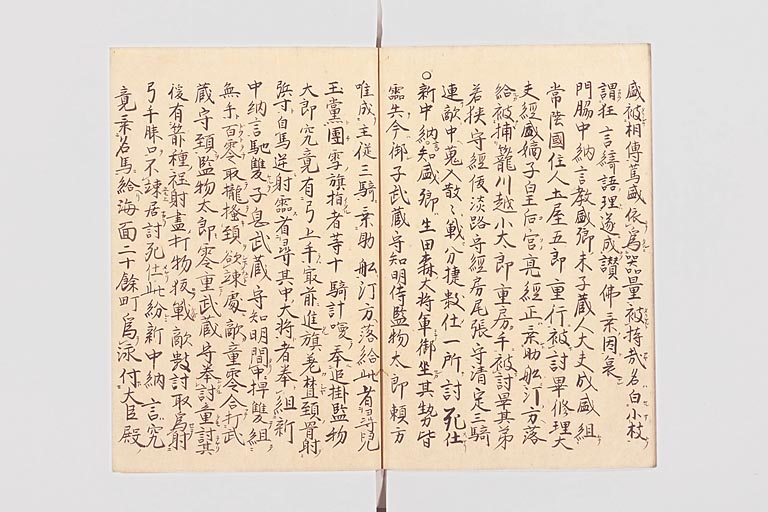 盛被相傳篤盛依爲器量被持哉名曰小枝
謂狂言綺語理遂成讃佛乘因哀
門脇中納言教盛卿末子蔵人大夫成盛組
常陸國住人土屋五郎重行被討畢修理大
夫經盛嫡子皇后宮亮經正乘助舩汀方落
給被捕籠川越小太郎重房手被討畢其弟
若狹守經俊淡路守經房尾張守清定三騎
連敵中蒐入散〻戰分捕数仕一所討死仕
○新中納言知盛卿生田森大将軍御坐其勢皆
零失今御子武蔵守知明侍監物太郎頼方
唯成主從三騎乘助舩汀方落給此者尋兒
玉黨團雫旗指者等十騎計噯奉追掛監物
太郎究竟有弓上手㝡前進旗差楂頚骨射
弽寸自馬逆射零者尋其中大将者奉組新
中納言馳雙子息武蔵守知明間中捍雙組
無手百零取攏搔頚欲竦處敵童零合打武
蔵守頚監物太郎零重武蔵守奉討童討其
後有箙種裎射盡打物抜戰敵数討取爲射
弓手膝口不竦居討死仕此紛新中納言究
竟乘名馬給海面二十餘町爲泳付大臣殿